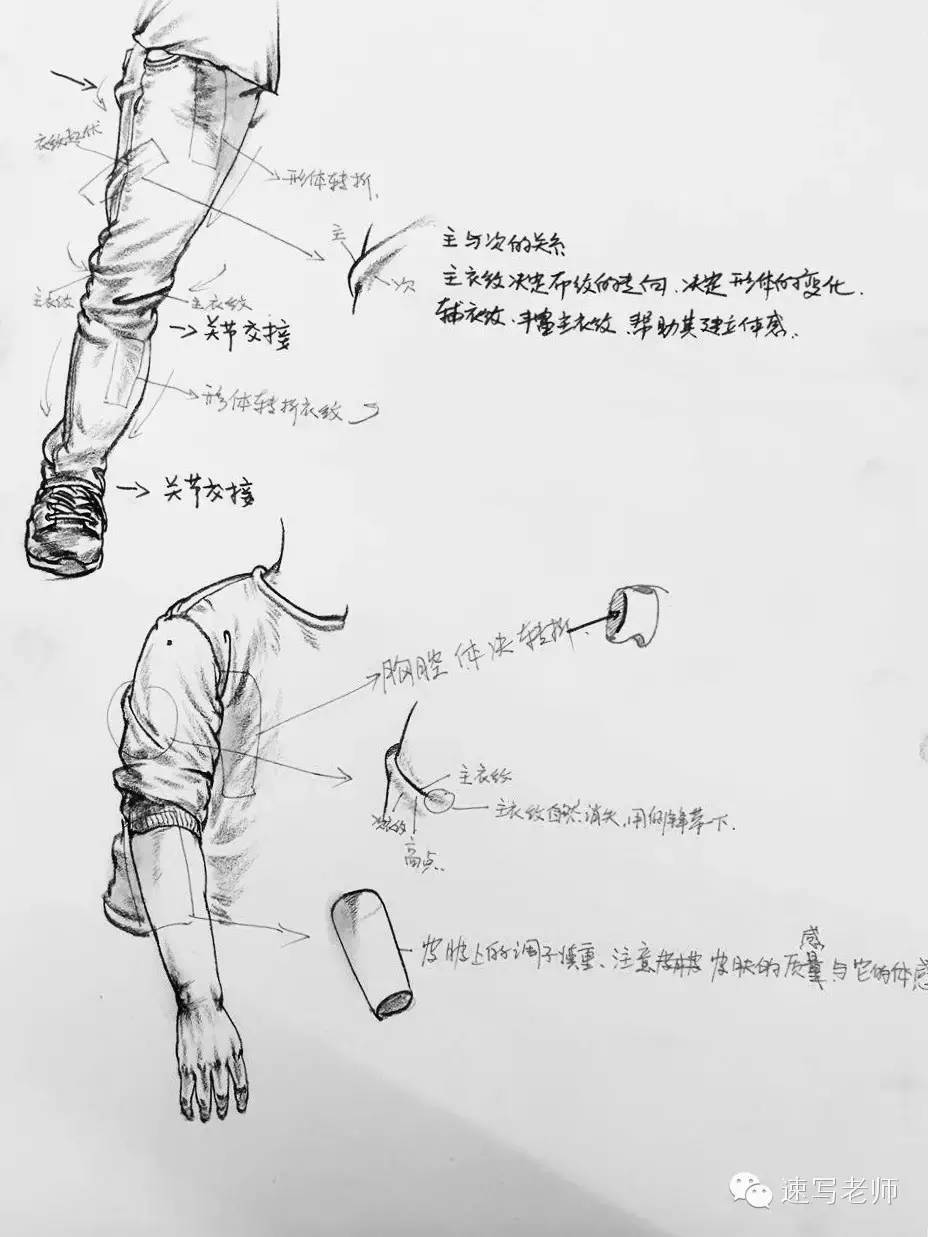 衣纹起伏
形体转折.
主
次
主与次的关系
主衣纹决定布纹的走向.决定形体的变化.
辅衣纹.丰富主衣纹.帮助其建立体感.
主衣纹
主衣纹
关节交接
形体转折衣纹
关节交接
胸腔体决转折
主衣纹
主衣纹自然消失,用侧锋带一下.
次衣纹
高点.
皮肤上的调子慎重、注意 皮肤的质感量与它的体感
速写老师